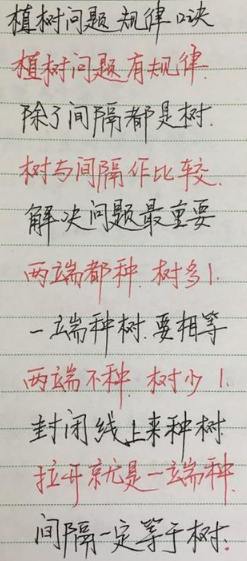 植树问题规律口诀
植树问题有规律.
除了间隔都是树.
树与间隔作比较.
解决问题最重要
两端都种.树多1.
一端种树.要相等
两端不种.树少1.
封闭线上来种树.
拉开就是一端种.
间隔一定等于树.